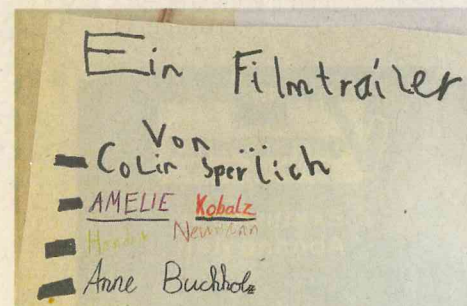 Ein Filmtrailer
Von ...
Colin Sperlich
AMELIE Kobalz
Neumann
Anne Buchholz